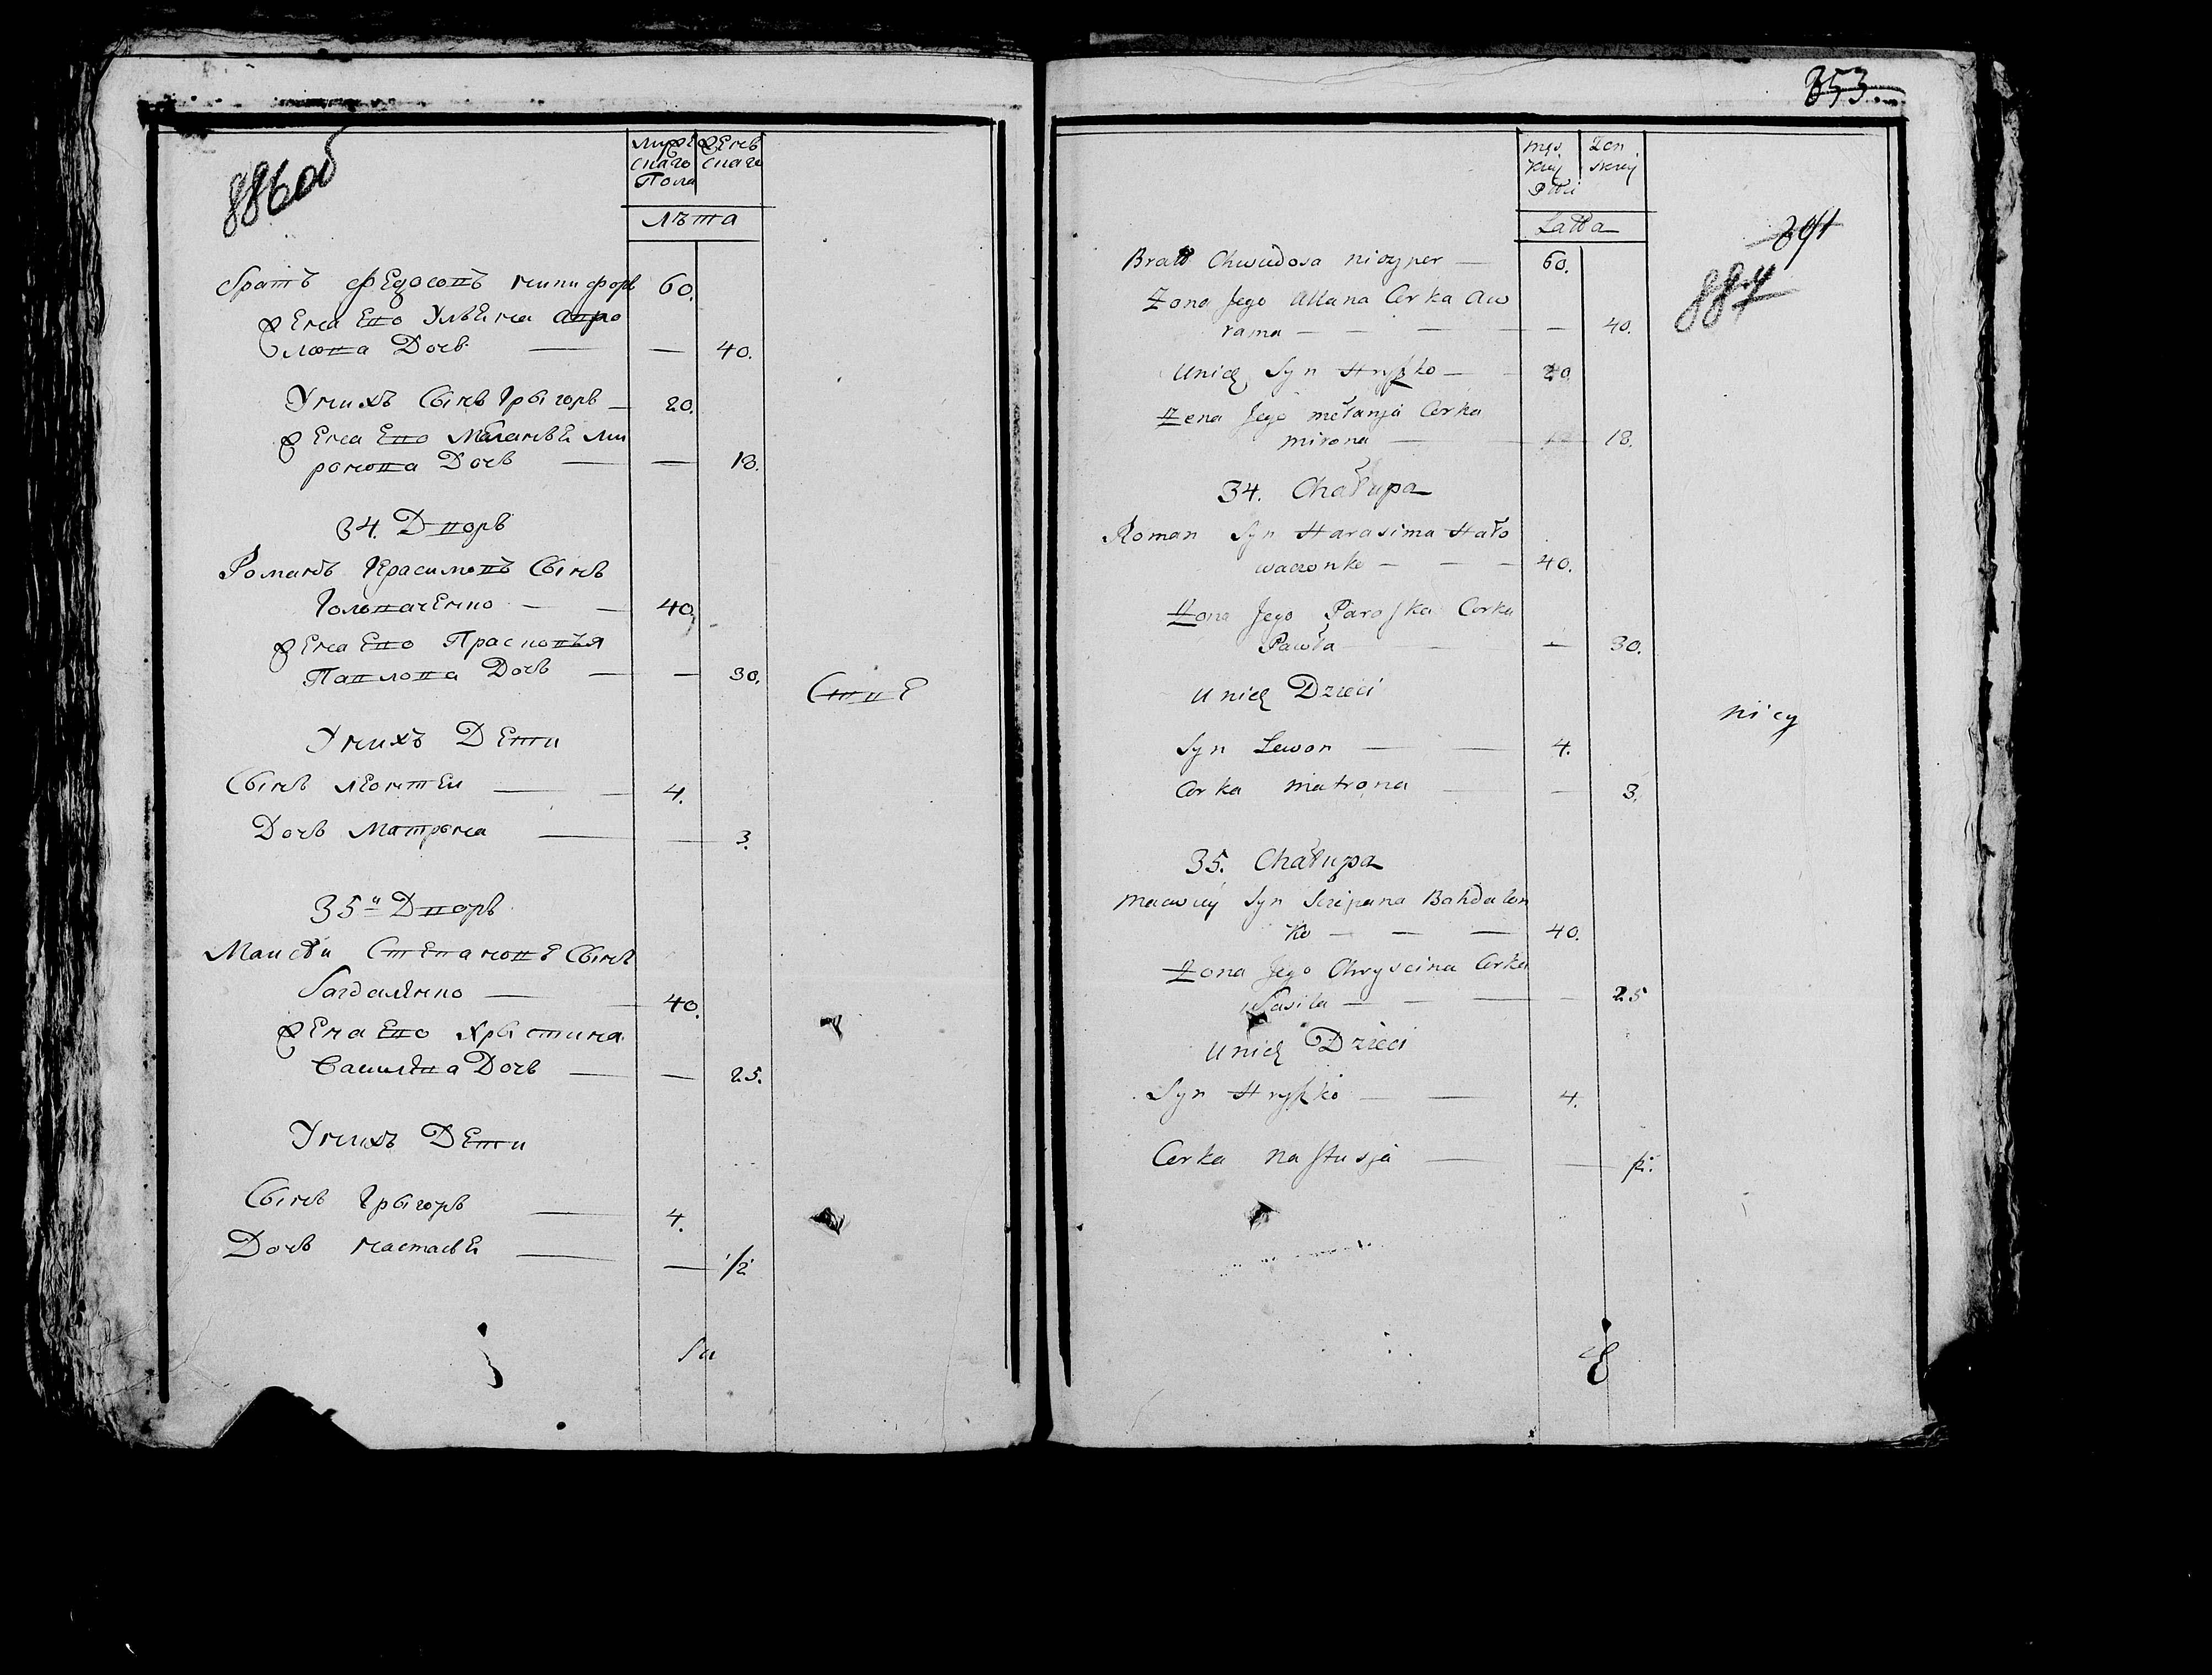 886об
Мужe Женс
скаго скаго
Пола
Лѣта
братъ Федосовъ никифоръ 60.
Жена Его Ульена Авро
мова Дочь — — 40.
Унихъ Сынъ Грыгоръ — 20.
Жена Его Маланьа Ми
ронова Дочь — — 18.
34. Дворъ
Романъ Герасимовъ Сынъ
Головаченко — — 40.
Жена Его Прасковья
Павлова Дочь — — 30.
Унихъ Дети
Сынъ леонтеи — — 4.
Дочь Матрона — — 3.
35й Дворъ
Маисѣи Степановъ Сынъ
багдаленко — — 40.
Жена Его Хрыстина
Василева Дочь — — 25.
Унихъ Дети
Сынъ Грыгоръ — 4.
Дочь настасья — — 1/2
353.
męs żen
kiej skiey
Płci
Latta
887
Bratt Chwedosa niczyper — 60.
Żona Jego Ullana Corka Aw
rama — — — — 40.
Unich Syn Hryszko — 20.
Żena Jego mełanja Corka
mirona — 18.
34. Chałupa
Roman Syn Harasima Hało
waczonko — — — 40.
Żona Jego Paraska Corka
Pawła — — 30.
Unich Dzieci
Syn Lewon — — 4.
Corka matrona — — 3.
35. Chałupa
maewiey Syn Sczepana Bahdalon
ko — — — 40.
Żona Jego Chryscina Corka
Wasila — — — — 25
Unich Dzieci
Syn Hryszko — — 4.
Corka Nastusja — — 1/2.